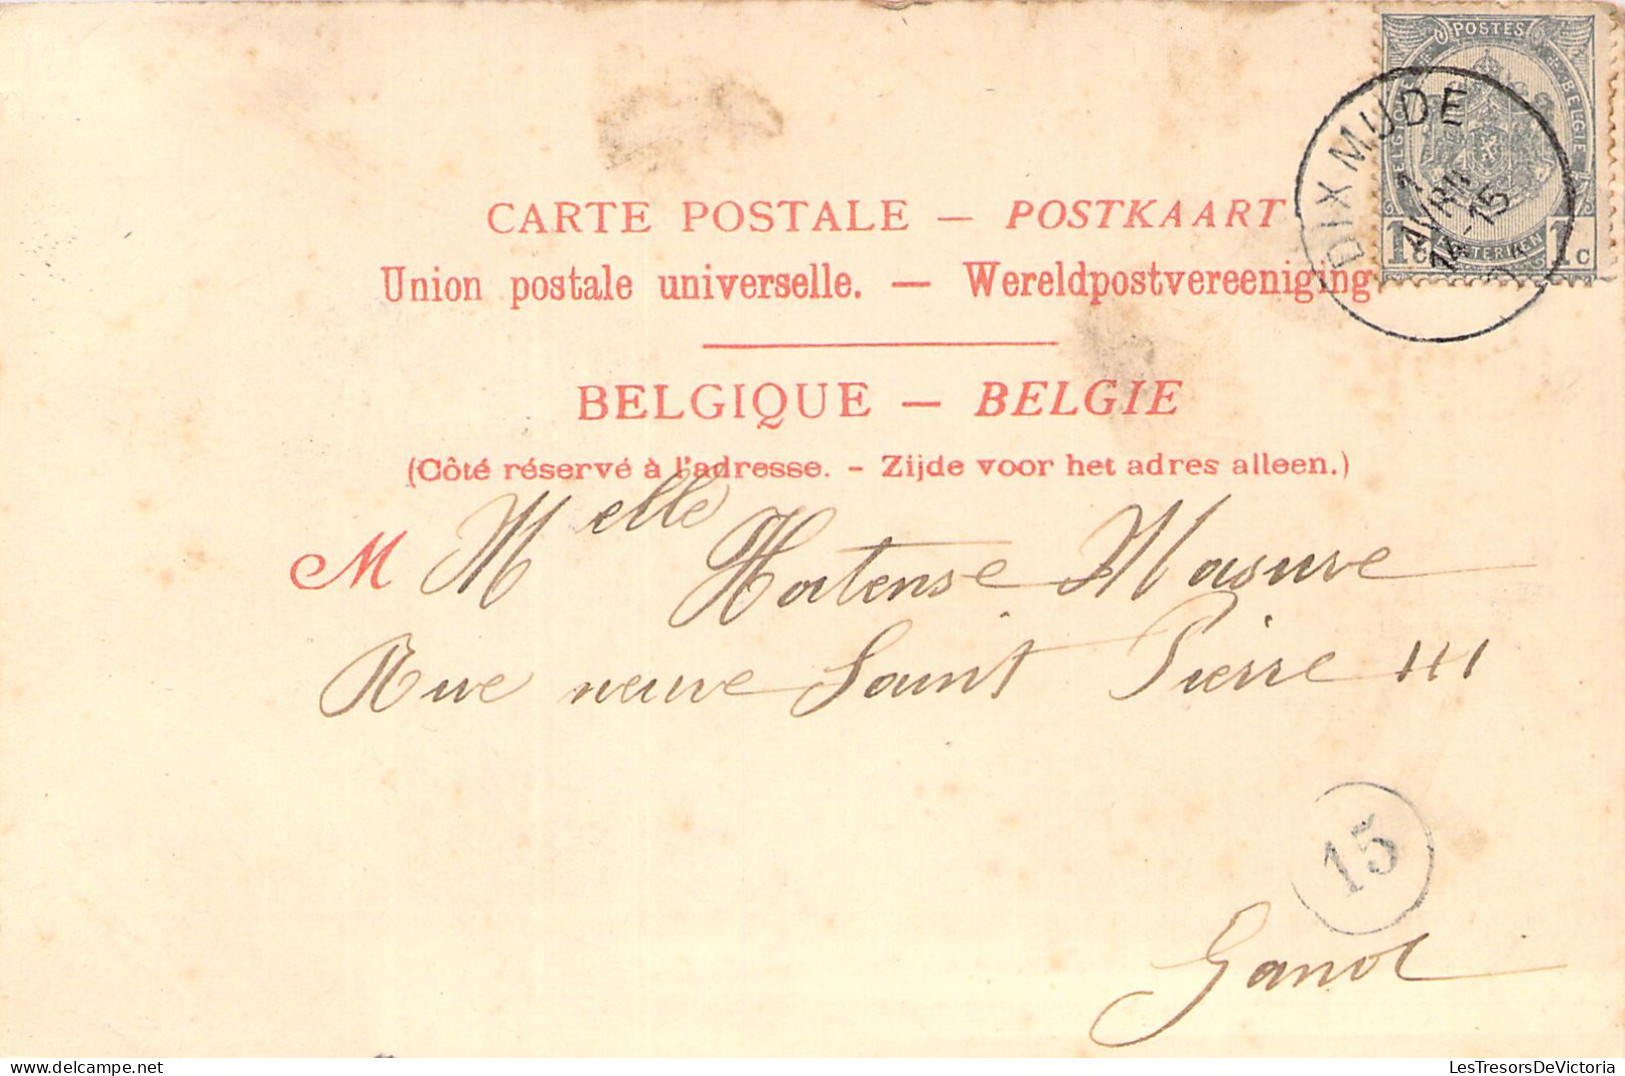 POSTES
BELGIQUE BELGIE
1c AMTERIKEN 1c
DIXMUDE
7
AVRIL
14-15
CARTE POSTALE — POSTKAART
Union postale universelle. — Wereldpostvereeniging.
BELGIQUE — BELGIE
(Côté réservé à l'adresse. - Zijde voor het adres alleen.)
M Melle Hortense Masure
Rue neuve Saint Pierre 111
15
Gand
LesTresorsDeVictoria